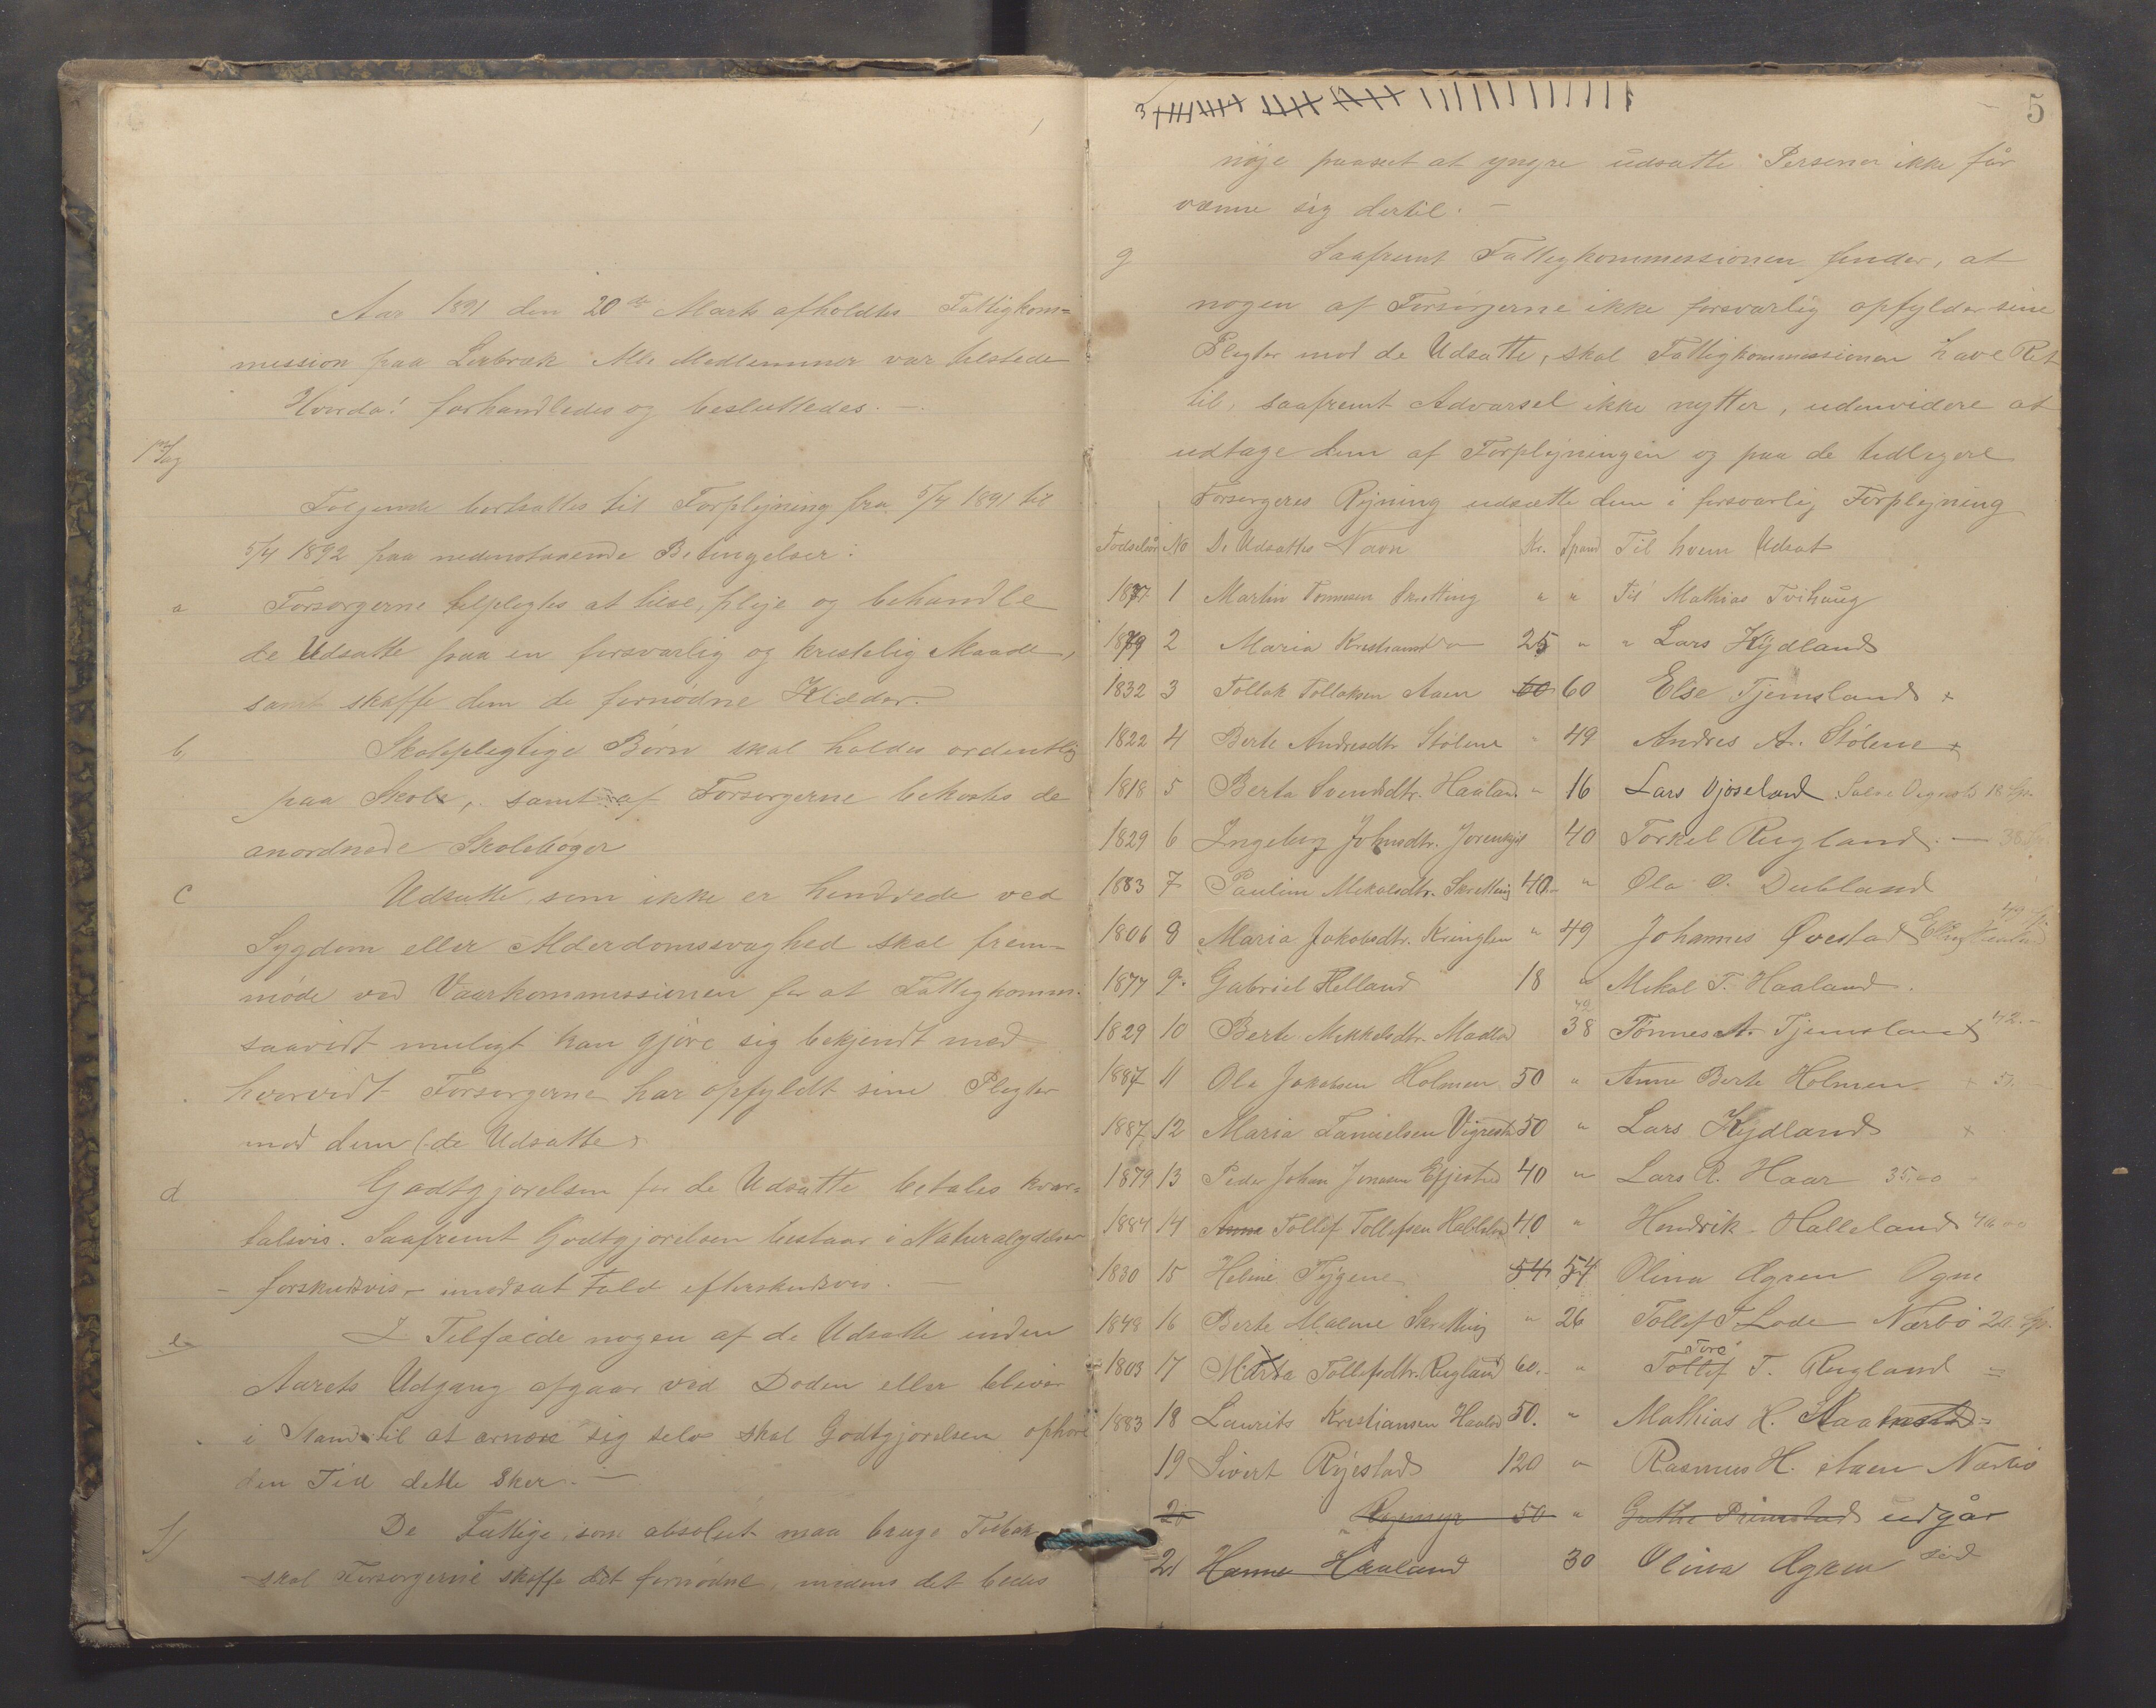 Aar 1891 den 20de Marts afholdtes Fattigkom=
mission paa Lerbræk Alle Medlemmer var tilstede
Hvorda! forhandledes og besluttedes. —
1te Sag
Følgende bortsattes til Forplejning fra 5/4 1891 til
5/4 1892 paa nedenstaaende Betingelser:
a Forsørgerne tilpligtes at tilse, pleje og behandle
de Udsatte paa en forsvarlig og kristelig Maade,
samt skaffe dem de fornødne Klæder.
b, Skolepligtige Børn skal holdes ordentlig
paa Skole, samt af Forsørgerne bekostes de
anordnede Skolebøger
c Udsatte, som ikke er hindrede ved
Sygdom eller Alderdomssvaghed skal frem-
møde ved Vaarkommissionen for at Fattigkomm.
saavidt muligt kan gjøre sig bekjendt med
hvorvidt Forsørgerne har opfyldt sine Pligter
mod dem (de Udsatte)
d Godtgjørelsen for de Udsatte betales kvar=
talsvis. Saafremt Godtgjørelsen bestaar i Naturalydelser
- forskudsvis - i modsat Fald efterskudsvis. —
e I Tilfælde nogen af de Udsatte inden
Aarets Udgang afgaar ved Døden eller bliver
i Stand til at ernære sig selv skal Godtgjørelsen ophøre
den Tid dette sker. —
f) De Fattige, som absolut maa bruge Tobak
skal Forsørgerne skaffe det fornødne, medens det bedes
5
nøje paaseet at yngre udsatte Personer ikke får
vænne sig dertil. —
g Saafremt Fattigkommissionen finder, at
nogen af Forsørgerne ikke forsvarlig opfylder sine
Pligter mod de Udsatte, skal Fattigkommissionen have Ret
til, saafremt Advarsel ikke nytter, udenvidere at
udtage dem af Forplejningen og paa de tidligere
Forsørgeres Rejning udsætte dem i forsvarlig Forplejning
Fødselsår No De Udsattes Navn Kr. Spand Til hvem Udsat
1877 1 Martin Tønnesen Skretting " " Til Mathias Tvihaug
1879 2 Maria Kristiansd " 25 " " Lars Kydland
1832 3 Tollak Tollaksen Aaen 60 60 Else Tjemsland +
1822 4 Berte Andresdtr. Stølene " 49 Andres A. Stølene +
1818 5 Berta Svendsdtr. Haaland " 16 Lars Ojoseland 18 Sp.
1829 6 Ingeborg Johnsdtr. 40 Torkel Rugland. — 38
1883 7 Pauline Mikalsdtr. Skretting 40.- " Ola O. Dubland
1806 8 Maria Jakobsdtr. Kringlen " 49 Johannes Ovestad 49
1877 9. Gabriel Helland 18 " Mikal T. Haaland.
1829 10 Berte Mikkelsdtr. Madland 38 40 Tønnes A. Tjemsland 42.-
1887 11 Ole Jakobsen Holmen 50 " Anne Berte Holmen +
1887 12 Maria Danielsen Vigrestad 50 " Lars Kydland +
1879 13 Peder Johan Jonasen Efjestad 40 " Lars R. Haar 35,00
1884 14 Anna Tollef Tollefsen Halleland 40. " Hendrik Halleland
1830 15 Heline Tygene 54 54 Olina Ogren Ogne
1848 16 Berte Malene Skretting " 26 Tollef T. Lode Nærbø 20 Sp.
1803 17 Marta Tollefsdtr. Rugland 60.- " Tollef Tore T. Rugland =
1883 18 Laurits Kristiansen Haaland 50. " Mathias H.
19 Sivert Ryestad 120 " Rasmus H. Aaen Nærbø
20 50 " udgår
21 Hanne Haaland 30 Olina Ogren